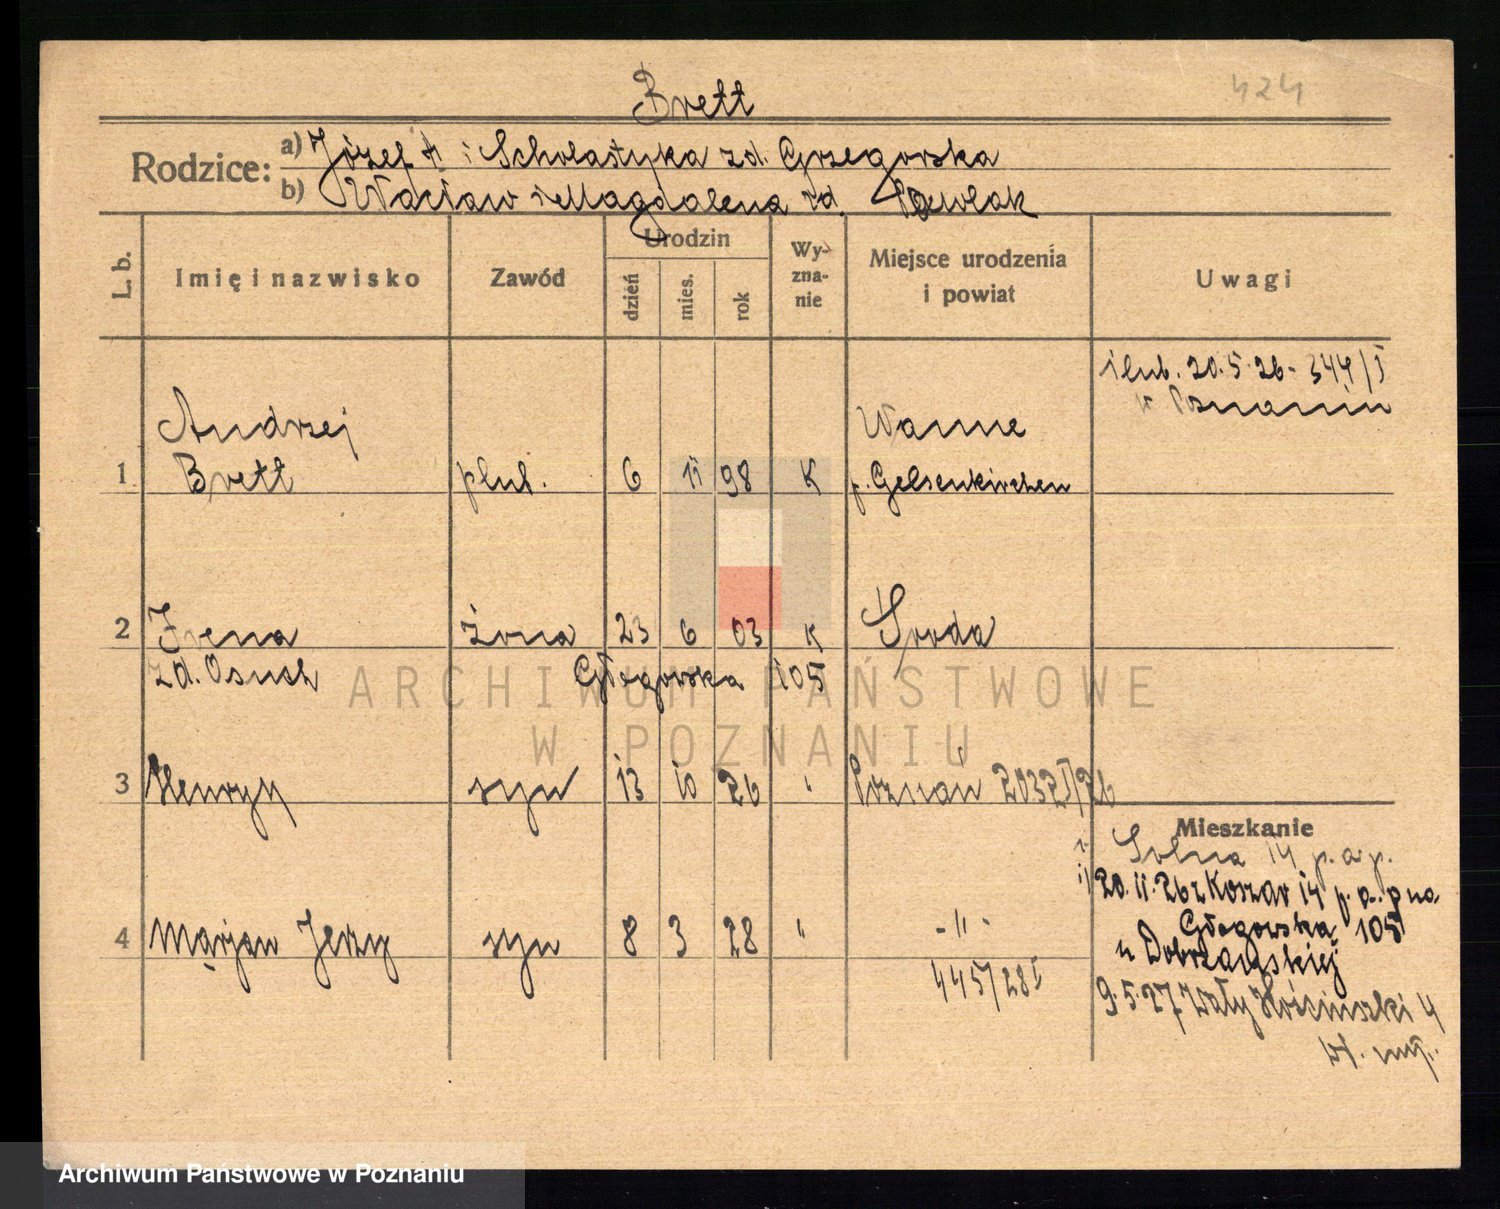 Brett
424
Rodzice: a) Józef i Scholastyka zd. Grzegorska
b) Wacław i Magdalena zd.
L. b.
Imię i nazwisko
Zawód
Urodzin
dzień
mies.
rok
Wy-
zna-
nie
Miejsce urodzenia
i powiat
Uwagi
ślub. 20.5.26 - 344/I
w Poznaniu
Andrzej
Wanne
1 Brett plut. 6 11 98 K p. Gelsenkirchen
2 Irena żona 23 6 03 K Środa
zd. Osuch Głogowska 105
ARCHIWUM PAŃSTWOWE
W POZNANIU
3 Henryk syn 13 10 26 " Poznań 2032I/26
Mieszkanie
Solna 14 p.a.p.
20.11.26 z Koszar 14 p.a.p na
Głogowska 105
u Dobrzańskiej
4 Marjan Jerzy syn 8 3 28 " - " -
445/28I
9.5.27 Wały 4
Archiwum Państwowe w Poznaniu